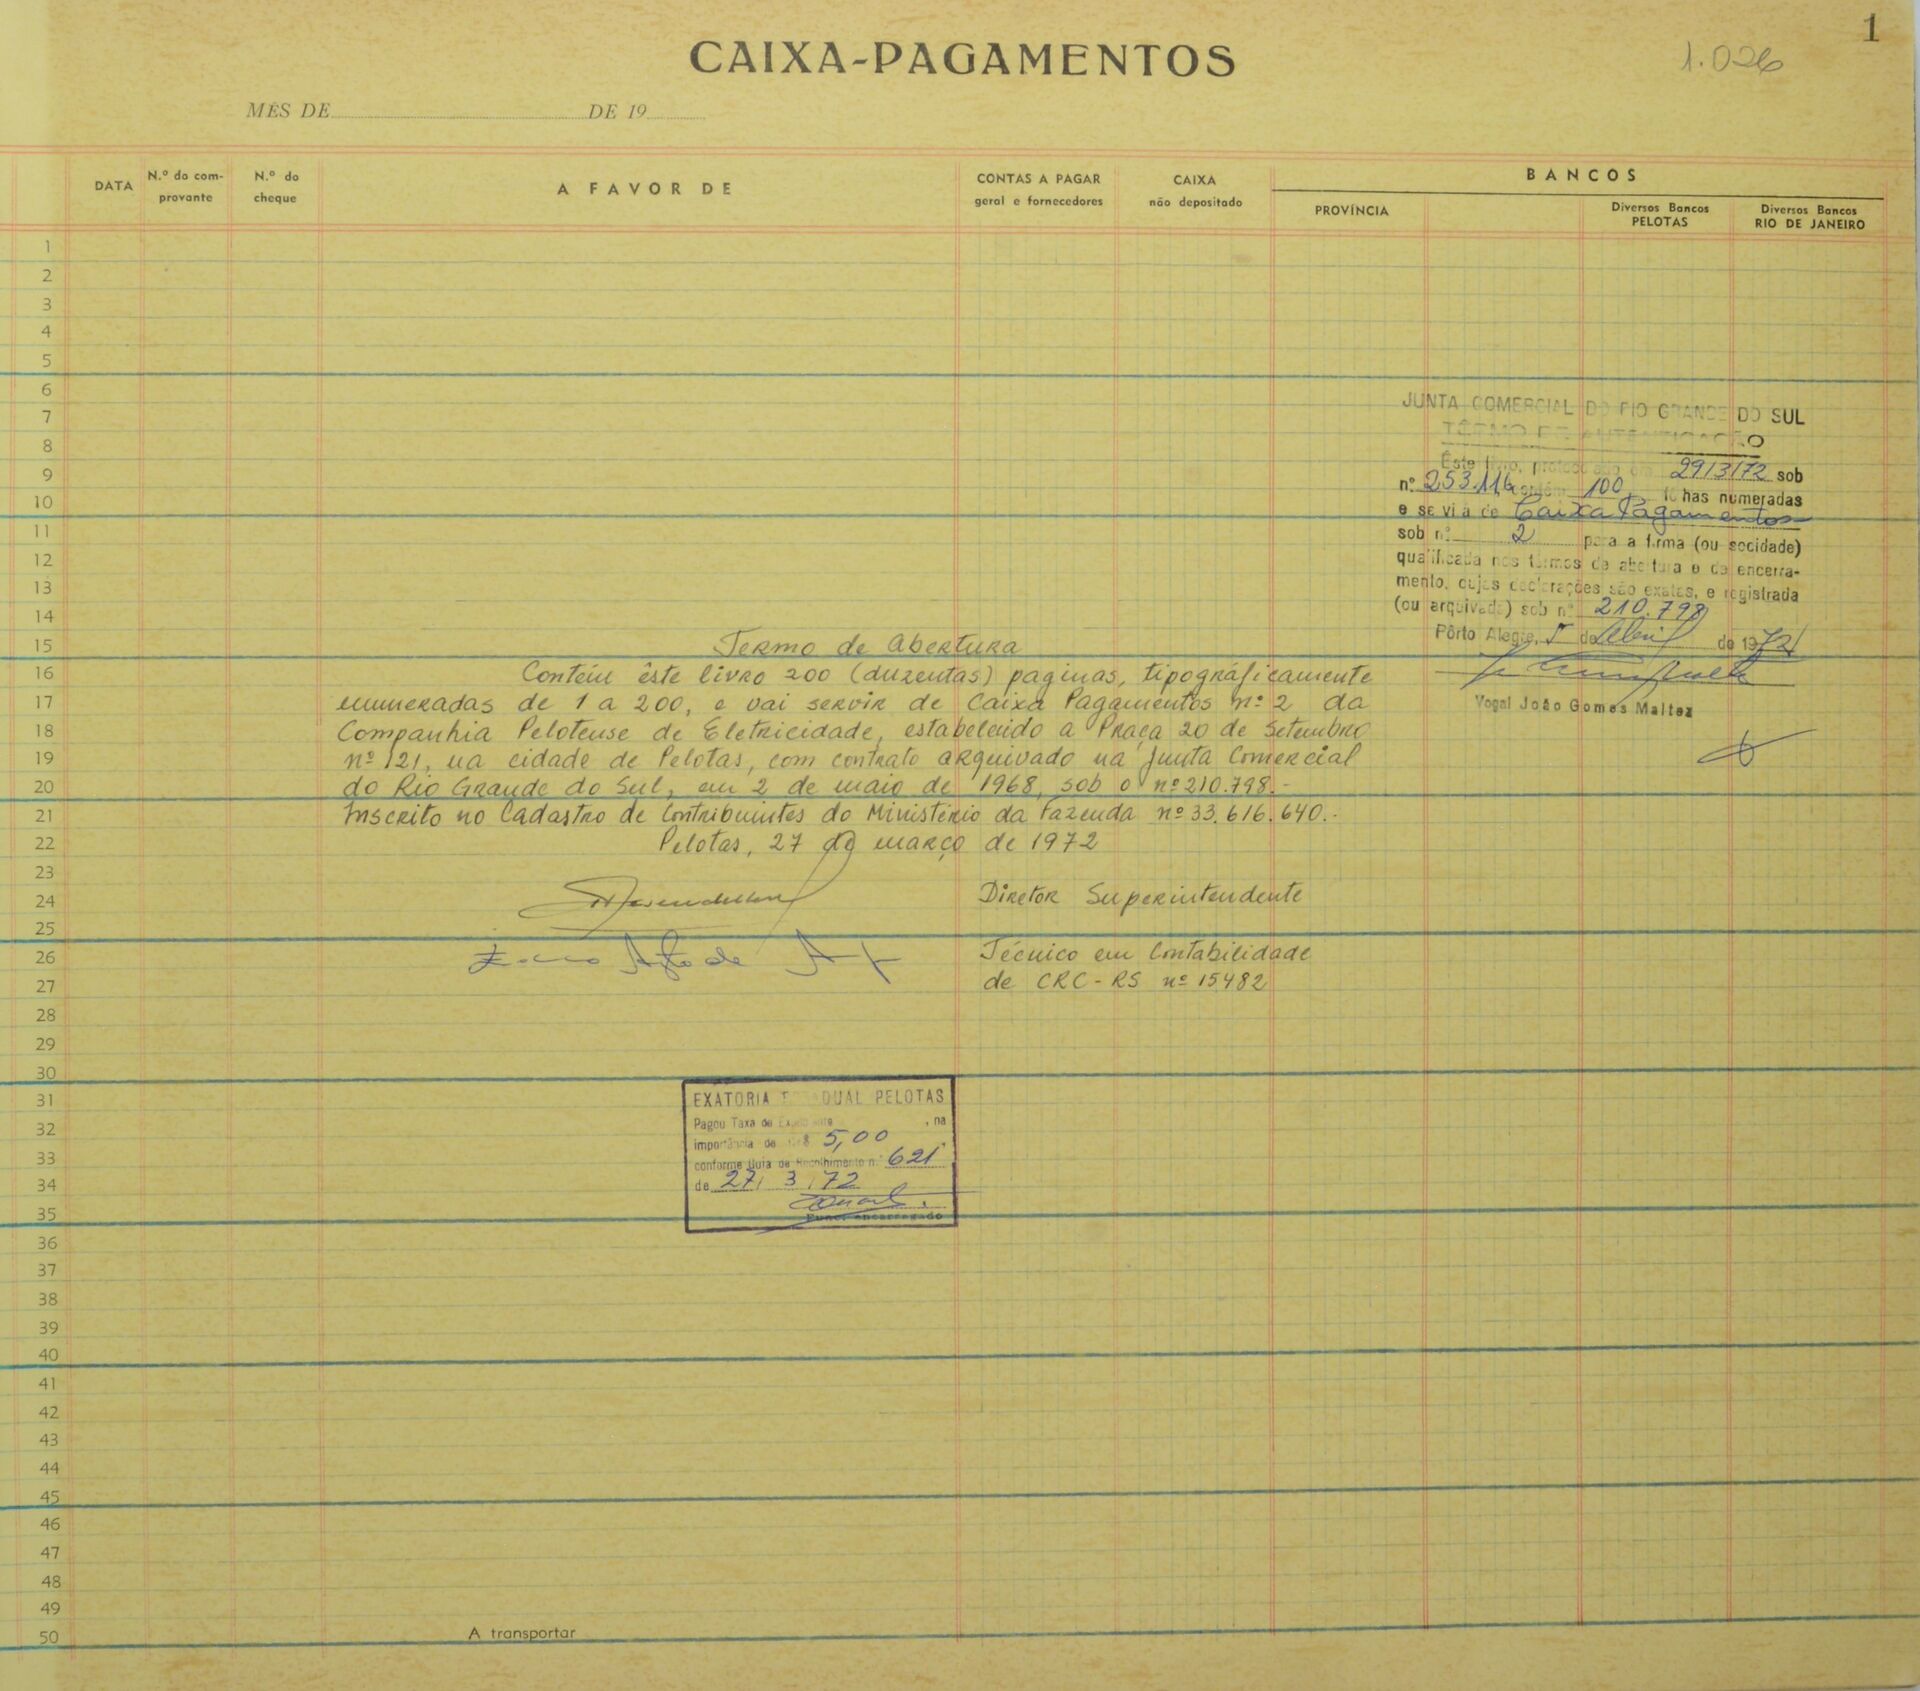 1
CAIXA-PAGAMENTOS
1.026
MÊS DE DE 19
DATA
N.º do com-
provante
N.º do
cheque
A FAVOR DE
CONTAS A PAGAR
geral e fornecedores
CAIXA
não depositado
BANCOS
PROVÍNCIA
Diversos Bancos
PELOTAS
Diversos Bancos
RIO DE JANEIRO
1
2
3
4
5
6
7
8
9
10
11
12
13
14
15
16
17
18
19
20
21
22
23
24
25
26
27
28
29
30
31
32
33
34
35
36
37
38
39
40
41
42
43
44
45
46
47
48
49
50
JUNTA COMERCIAL DO RIO GRANDE DO SUL
TÊRMO DE AUTENTICAÇÃO
Êste livro, protocolado em 29/3/72 sob
nº 253.116 contém 100 folhas numeradas
e servirá de Caixa Pagamentos
sob nº 2 para a firma (ou socidade)
qualificada nos têrmos de abertura e de encerra-
mento, cujas declarações são exatas, e registrada
(ou arquivada) sob nº 210.798
Pôrto Alegre, 5 de Abril de 1972
Vogal João Gomes Maltez
Termo de Abertura
Contém êste livro 200 (duzentas) paginas, tipográficamente
enumeradas de 1 a 200, e vai servir de Caixa Pagamentos nº 2 da
Companhia Pelotense de Eletricidade, estabelecido a Praça 20 de Setembro
nº 121, na cidade de Pelotas, com contrato arquivado na Junta Comercial
do Rio Grande do Sul, em 2 de maio de 1968, sob o nº 210.798.-
Inscrito no Cadastro de Contribuintes do Ministério da Fazenda nº 33.616.640.-
Pelotas, 27 de março de 1972
Diretor Superintendente
Técnico em Contabilidade
de CRC-RS nº 15482
EXATORIA ESTADUAL PELOTAS
Pagou Taxa de Expediente, na
importância de Cr$ 5,00
conforme Guia de Recolhimento n.º 621
de 27/ 3 /72
Func. encarregado
A transportar